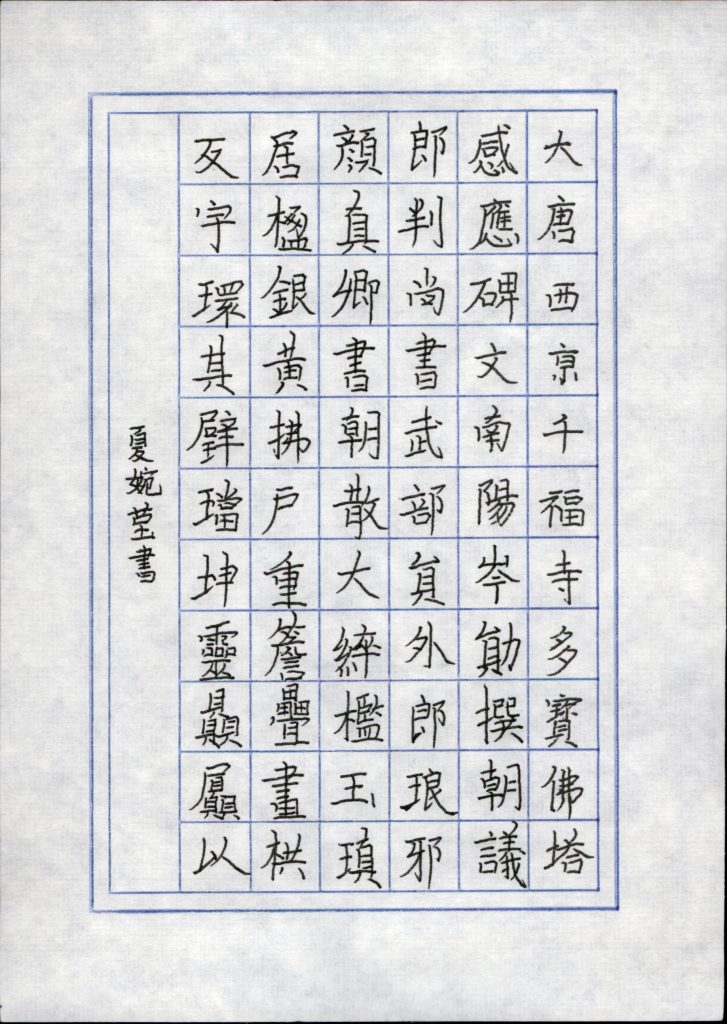 大唐西京千福寺多寶佛塔
感應碑文南陽岑勛撰朝議
郎判尚書武部員外郎琅邪
顏真卿書朝散大綷檻玉瑱
居楹銀黃拂戶重簷疊畫栱
反宇環其璧璫坤靈贔屭以
夏婉莹書